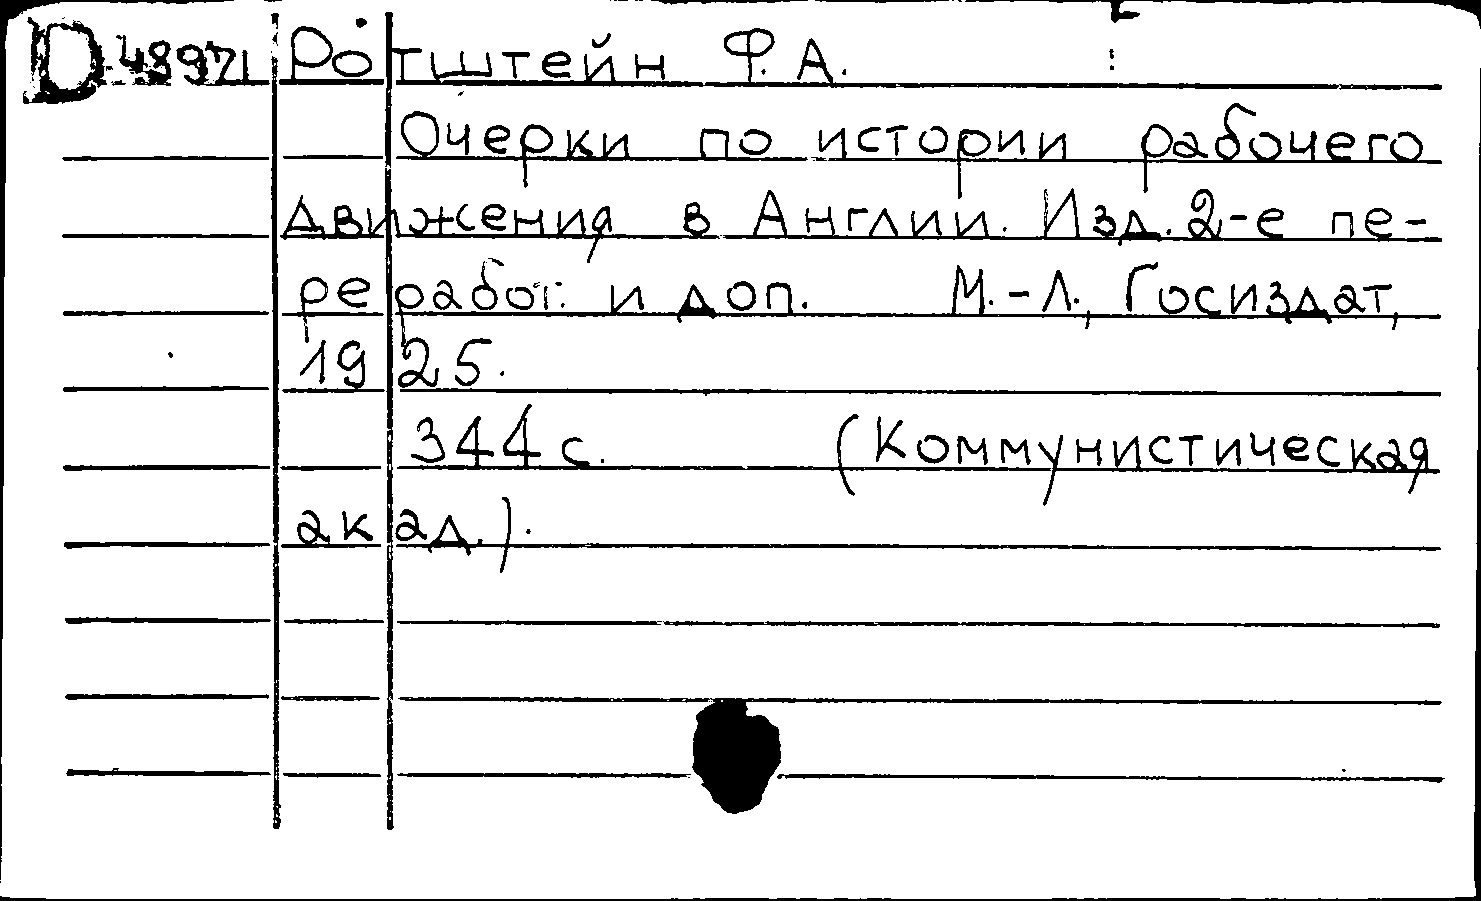 D 48971 Ротштейн Ф. А.
Очерки по истории рабочего
движения в Англии. Изд. 2-е пе-
реработ. и доп. М.-Л., Госиздат,
1925.
344 с. (Коммунистическая
акад.).